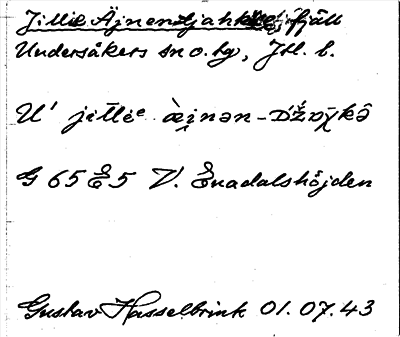 Jillie Äjnendjahke, fjäll
Undersåkers sn o. tg, Jtl. l.
U' jìllēe ὰi̯nən-Džɒχkə̂
G 65 E 5 V. Enadalshöjden
Gustav Hasselbrink 01.07.43